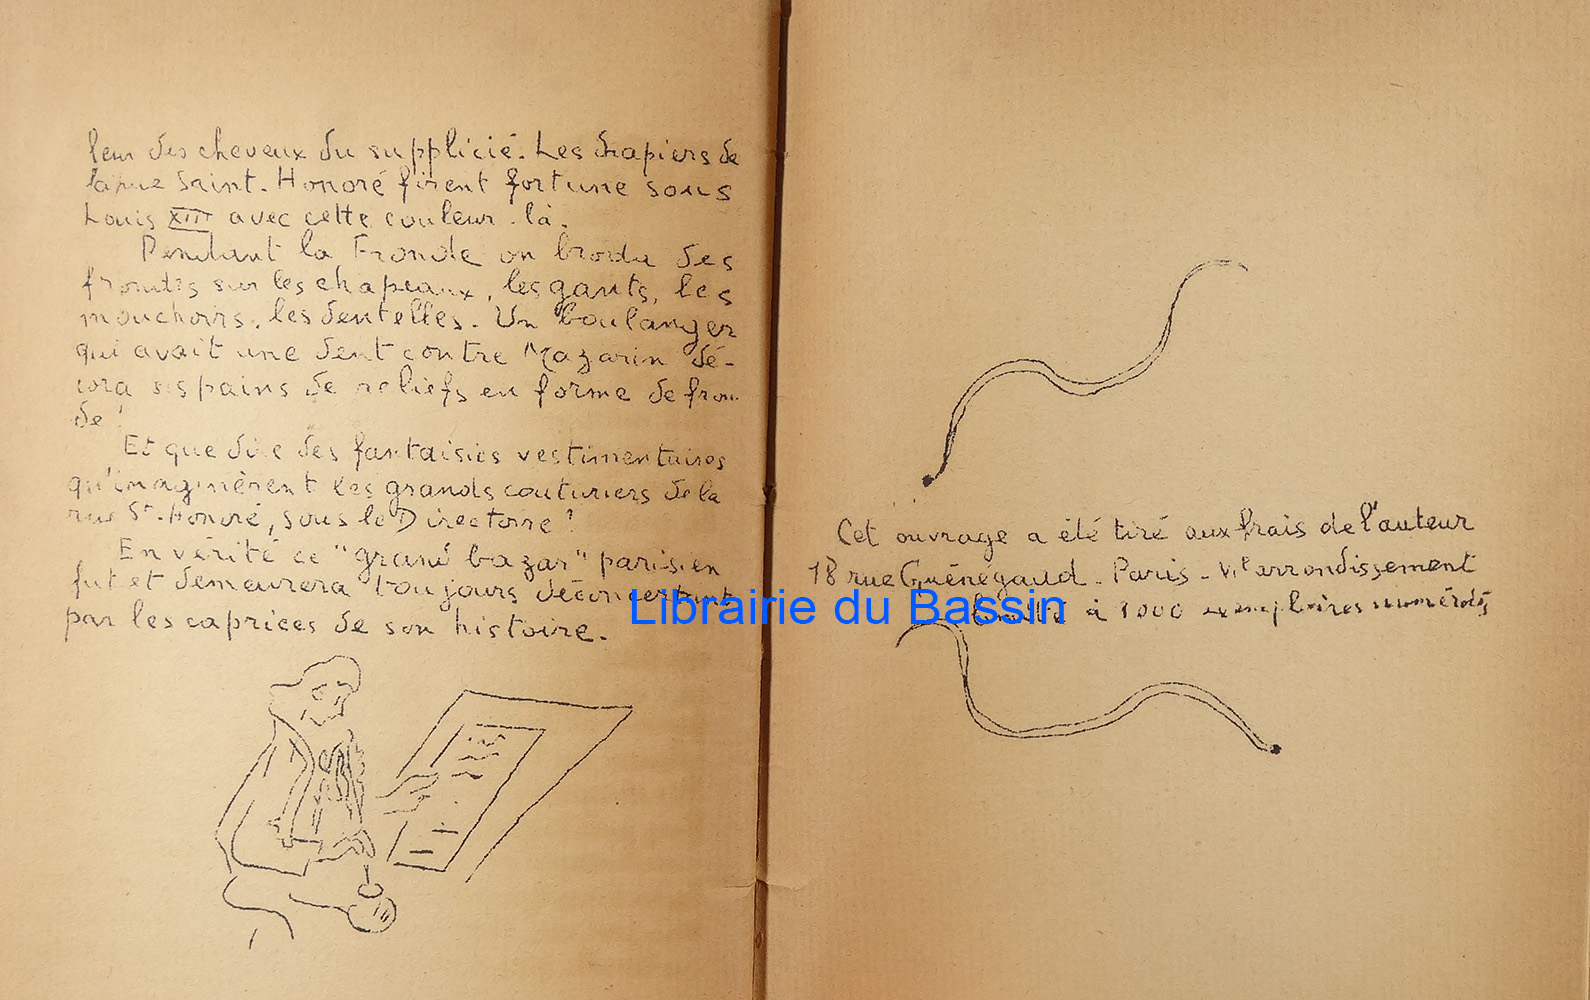 leur des cheveux du supplicié. Les drapiers de
la rue Saint-Honoré firent fortune sous
Louis XIII avec cette couleur-là.
Pendant la Fronde on broda des
frondes sur les chapeaux, les gants, les
mouchoirs, les dentelles. Un boulanger
qui avait une dent contre Mazarin dé-
cora ses pains de reliefs en forme de fron-
de !
Et que dire des fantaisies vestimentaires
qu'imaginèrent les grands couturiers de la
rue St-Honoré, sous le Directoire ?
En vérité ce "grand bazar" parisien
fut et demeurera toujours déconcertant
par les caprices de son histoire.
Cet ouvrage a été tiré aux frais de l'auteur
18 rue Guénégaud - Paris - VIe arrondissement
à 1000 exemplaires numérotés
Librairie du Bassin